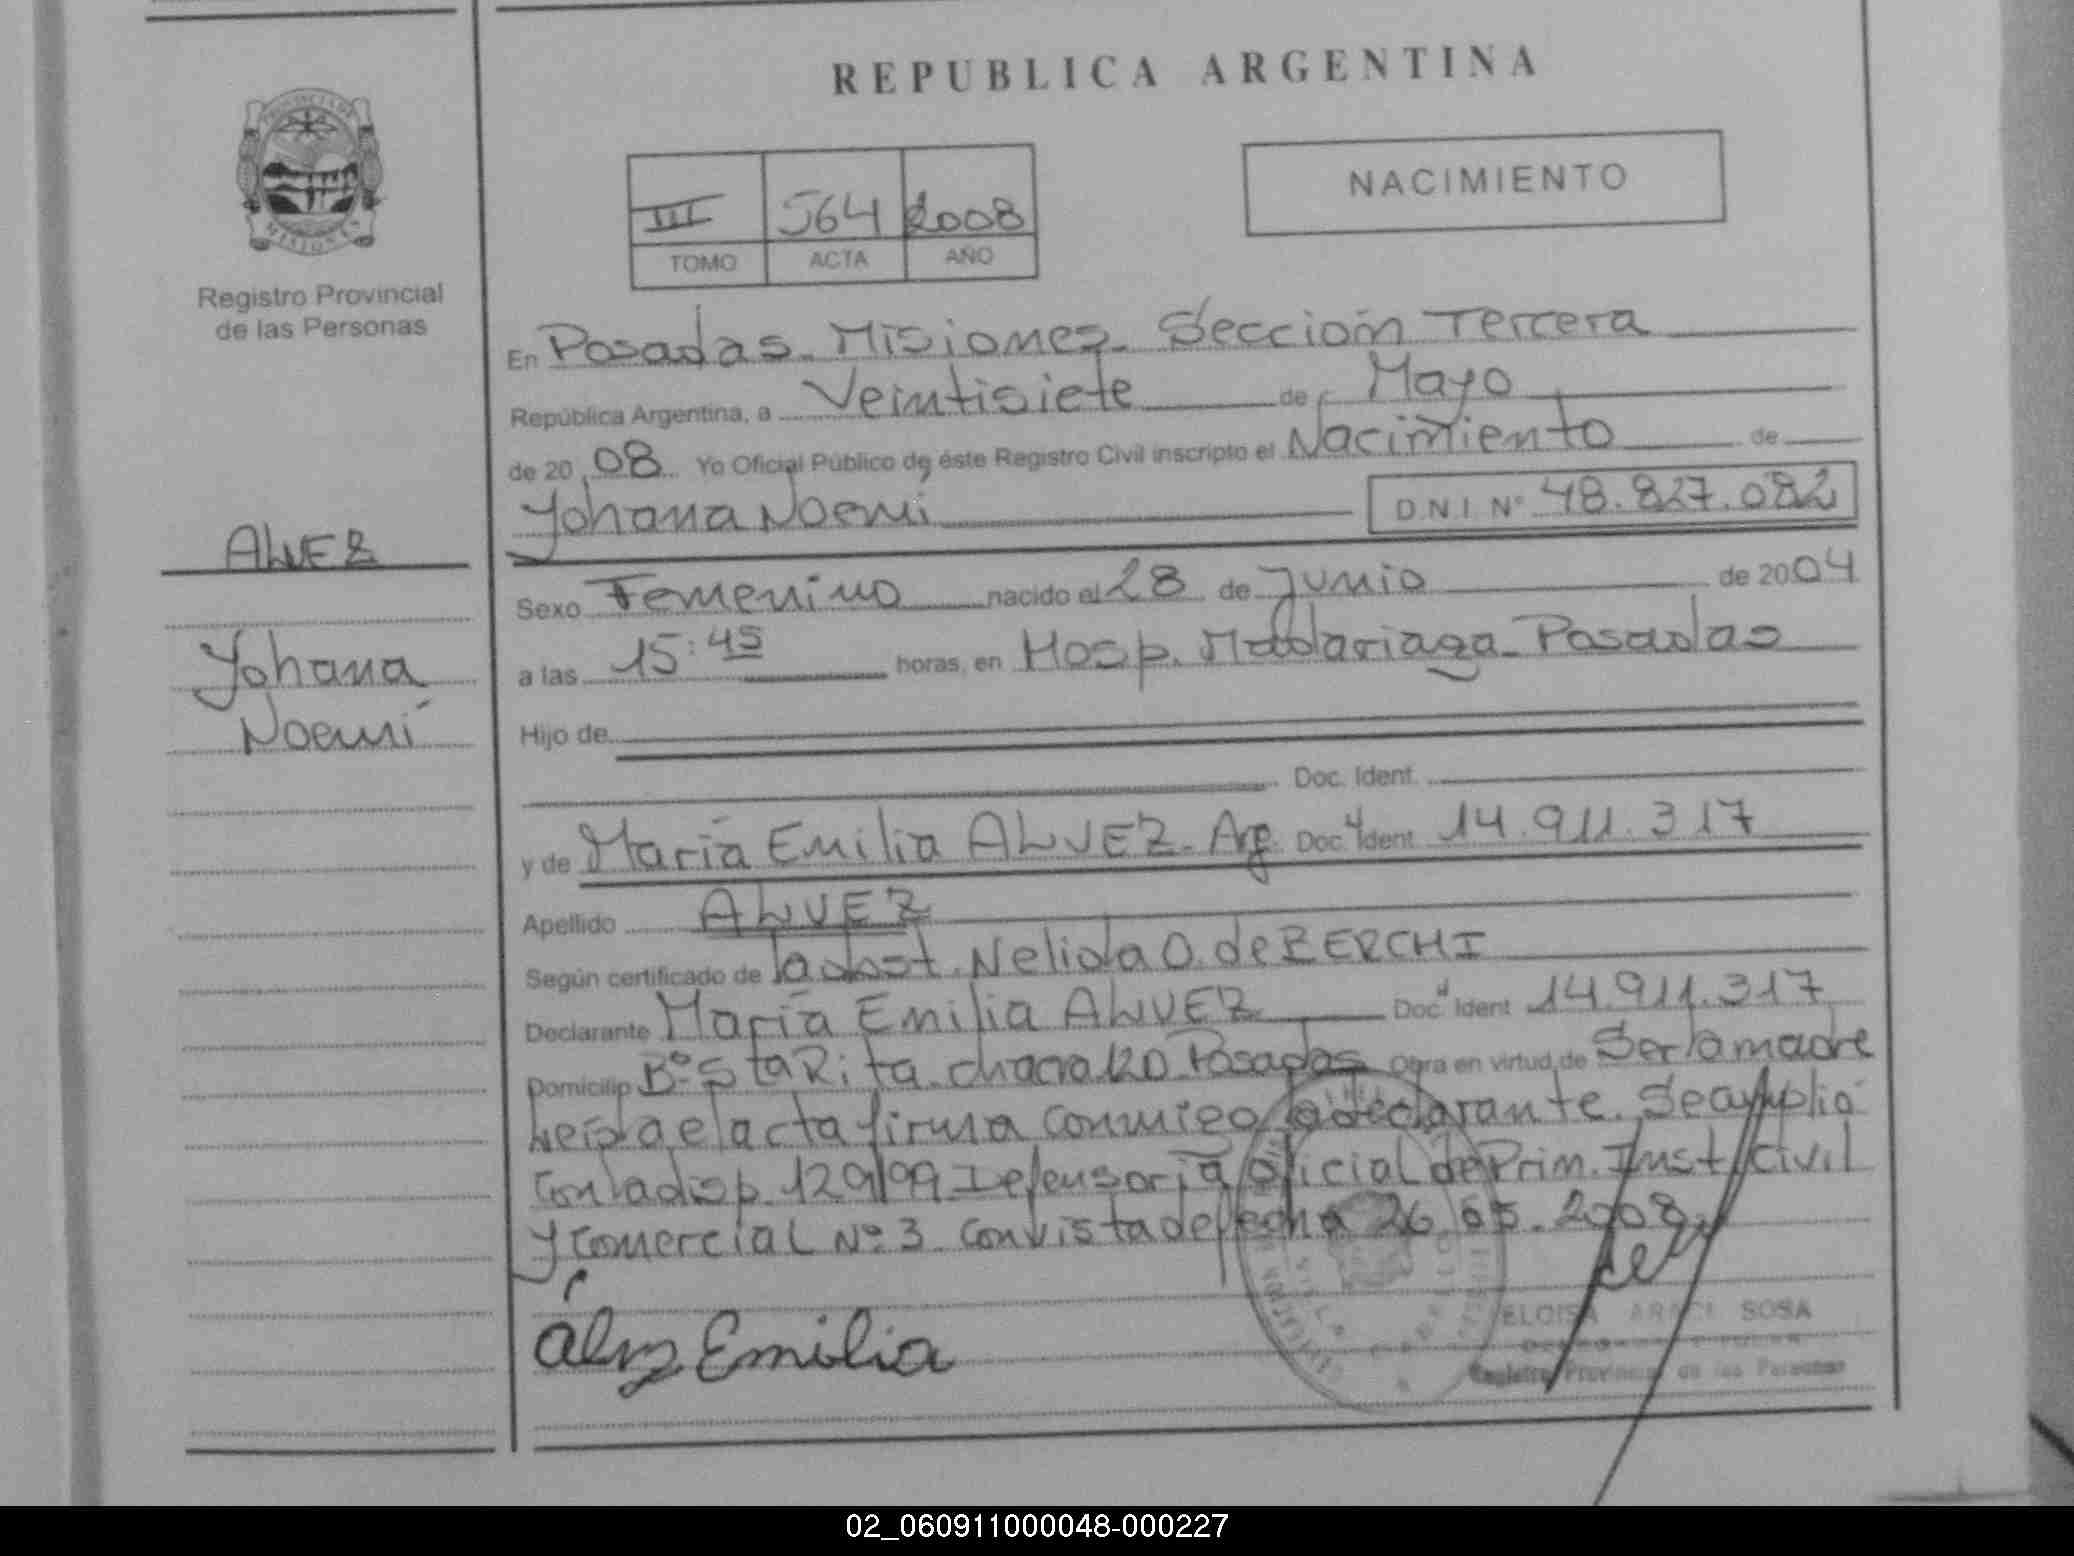 REPUBLICA ARGENTINA
PROVINCIA DE
MISIONES
Registro Provincial
de las Personas
III 564 2008
TOMO ACTA AÑO
NACIMIENTO
En Posadas. Misiones. Sección Tercera
República Argentina, a Veintisiete de Mayo
de 2008 Yo Oficial Público de éste Registro Civil inscripto el Nacimiento de
Yohana Noemí D.N.I. Nº 48.827.082
ALVEZ
Yohana
Noemí
Sexo Femenino nacido el 28 de Junio de 2004
a las 15:45 horas, en Hosp. Madariaga. Posadas
Hijo de
Doc. Ident.
y de María Emilia ALVEZ. Arg. Doc. Ident. 14.911.317
Apellido ALVEZ
Según certificado de la obst. Nelida O. de BERCHI
Declarante María Emilia ALVEZ Doc. Ident 14.911.317
Domicilio Bº Sta Rita. chacra 120 Posadas Obra en virtud de Ser la madre
Leída el acta firma conmigo la declarante. Se amplió
Con la disp. 129/99 Defensoría Oficial de Prim. Inst. Civil
y Comercial Nº 3 con vista de fecha 26.05.2008
Alvz Emilia
ELOISA ARACI SOSA
Registro Provincial de las Personas
02_060911000048-000227